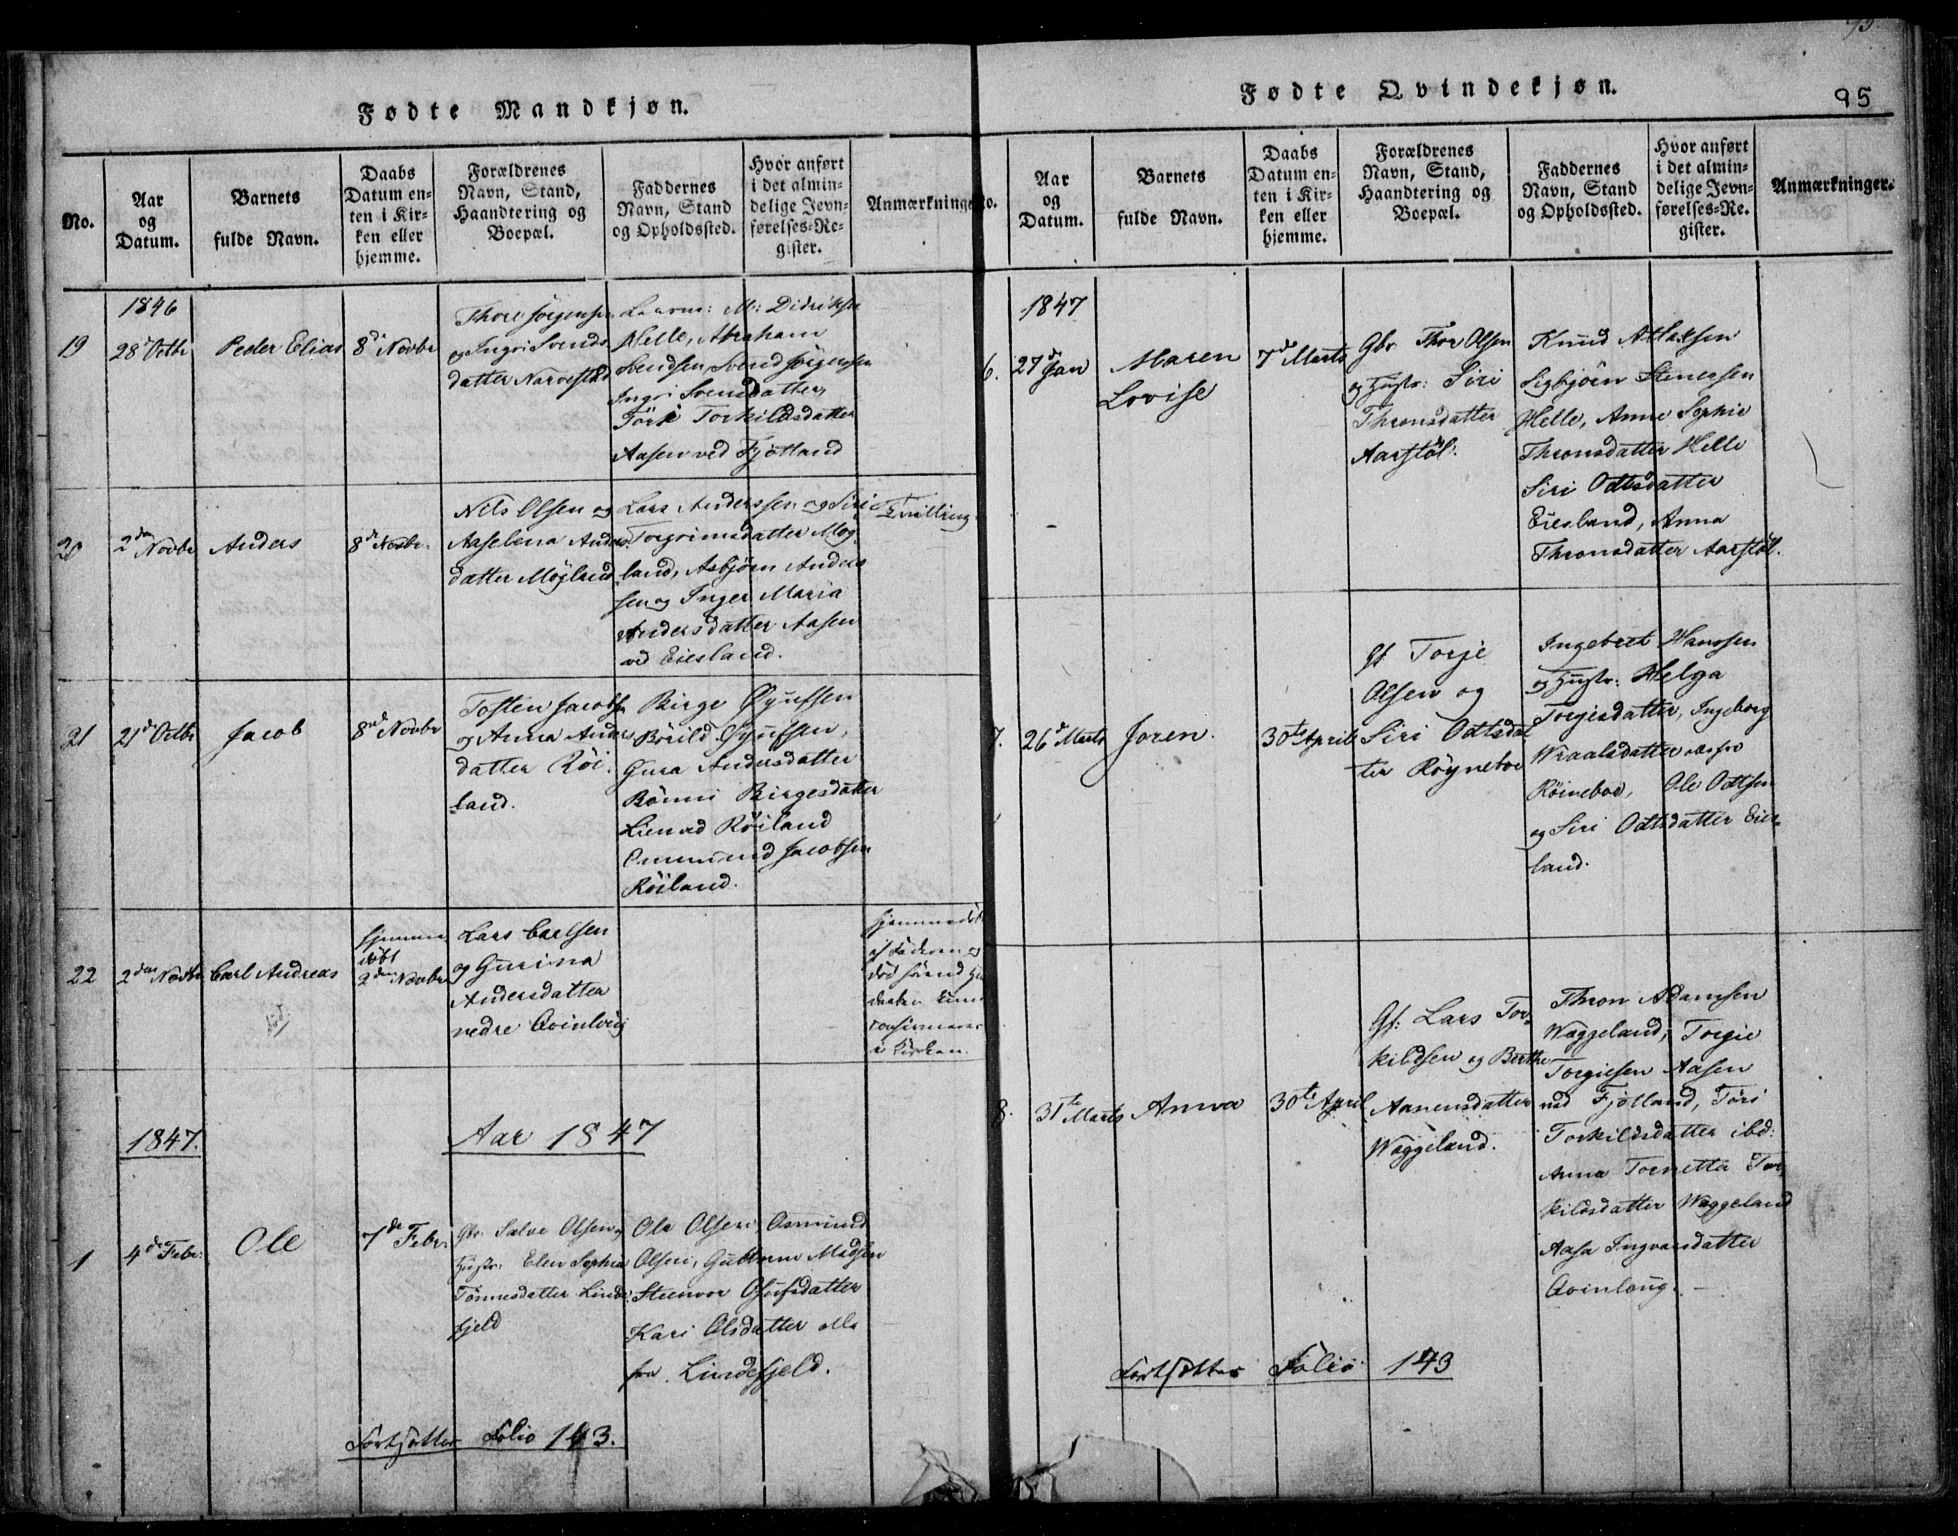 Fødte Mandkjøn.
No.
Aar
og
Datum.
Barnets
fulde Navn.
Daabs
Datum en-
ten i Kir-
ken eller
hjemme.
Forældrenes
Navn, Stand,
Haandtering og
Boepæl.
Faddernes
Navn, Stand
og Opholdssted.
Hvor anført
i det almin-
delige Jevn-
førelses-Re-
gister.
Anmærkninge
1846
19
28 Octbr
Peder Elias
8d Novbr
Thore Jørgensen
og Ingri Svends
datter Narvestad
M: Didriksen
Helle, Abraham
Svendsen, Svend Jörgensen
Ingri Svensdatter,
Torkildsdatter
Aasen ved Fjotland
20
2den Novbr
Anders
8d Novbr.
Nils Olsen og
Aaselena Anders
datter Möglend
Lars Anderssen og Siri
Torgrimsdatter Mög
land, Asbjörn Anders
sen og Inger Maria
Andersdatter Aasen
ved Eiesland.
Tvilling
21
21d Octbr
Jacob
8nd Novbr
Tosten Jacobsen
og Anna Anders
datter Röi
land.
Birge Öyufsen
Börild Öyufsen,
Gura Andersdatter
Rönni Birgesdatter
Lien ved Röiland
Ommund Jacobsen
Röiland.
22
2den Novbr
Carl Andreas
død
hjemme
døbt
2den Novbr
Lars Carlsen
og Gurina
Andersdatter
nedre Qvinloug
hjemmedøbt
af Faderen og
død førend
daaben kun
i Kirken.
1847.
Aar 1847
1
4de Febr.
Ole
7de Febr.
Gbr Salve Olsen og
Hustr: Elen Sophia
Tönnesdatter Linde
fjeld
Ole Olsen, Osmund
Olsen, Gubl Madsen
Steenvor Osufsdatter
Kari Olsdatter alle
fra Lindefjeld.
Fortsætter Folio 143.
Fødte Qvindekjøn.
95
No.
Aar
og
Datum.
Barnets
fulde Navn.
Daabs
Datum en-
ten i Kir-
ken eller
hjemme.
Forældrenes
Navn, Stand,
Haandtering og
Boepæl.
Faddernes
Navn, Stand
og Opholdssted.
Hvor anført
i det almin-
delige Jevn-
førelses-Re-
gister.
Anmærkninger.
1847
6.
27d Jan
Maren
Lovise
7de Marts
Gbr Thor Olsen
og Hustr: Siri
Thronsdatter
Aarstöl.
Knud Atlaksen
Sigbjörn Stenersen
Helle, Anne Sophie
Thronsdatter Helle
Siri Odtsdatter
Eiesland, Anna
Thronsdatter Aarstöl.
7.
26d Marts
Joren.
30te April
Gf Torje
Olsen og
Siri Odtsdat
ter Röyneboe
Ingebret Hanssen
og Hustr: Helga
Torgisdatter, Ingeborg
Wraalsdatter alle fra
Röineboe, Ole Odtsen
og Siri Odtsdatter Eies-
land.
8.
31te Marts
Anna
30te April
Gf: Lars Tor-
kildsen og Berthe
Aanensdatter
Waggeland.
Thron Adamsen
Waggeland, Torgie
Torgiesen Aasen
ved Fjotland, Töri
Torkildsdatter ibd:
Anna Tornetta Tor
kildsdatter Waggeland
Aasa Ingvarsdatter
Qvinloug.
Fortsætter Folio 143